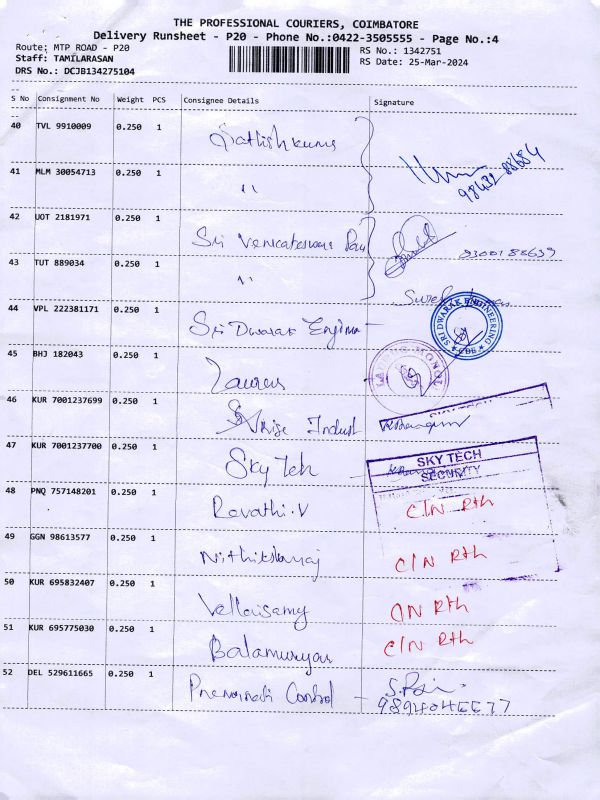 THE PROFESSIONAL COURIERS, COIMBATORE
Delivery Runsheet - P20 - Phone No.:0422-3505555 - Page No.:4
Route: MTP ROAD - P20
RS No.: 1342751
Staff: TAMILARASAN
RS Date: 25-Mar-2024
DRS No.: DCJB134275104
S No Consignment No Weight PCS Consignee Details Signature
40 TVL 9910009 0.250 1 Sathishkumar
41 MLM 30054713 0.250 1 "
98432 88684
42 UOT 2181971 0.250 1 Sri Venkateswara
43 TUT 889034 0.250 1 "
44 VPL 222381171 0.250 1 Sri Dwarak
SRI DWARAK ENGINEERING
CBE
45 BHJ 182043 0.250 1
46 KUR 7001237699 0.250 1 Arise Indust
47 KUR 7001237700 0.250 1 Sky Teh
SKY TECH
SECURITY
48 PNQ 757148201 0.250 1 Revathi.V C/N Rth
49 GGN 98613577 0.250 1 C/N Rth
50 KUR 695832407 0.250 1 Vellaisamy C/N Rth
51 KUR 695775030 0.250 1 Balamurugan C/N Rth
52 DEL 529611665 0.250 1 Control